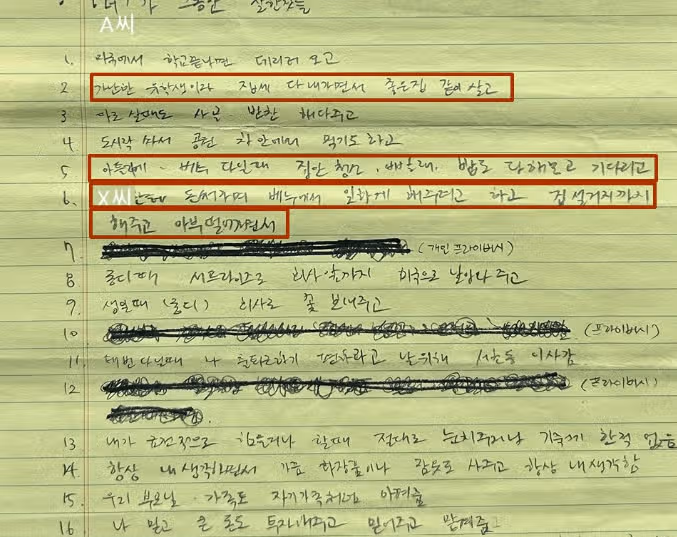 그동안
A씨
1. 미국에서 학교끝나면 데리러 오고
2 가난한 유학생이라 집세 다 내가면서 좋은집 같이 살고
3 따로 살때도 사는 반찬 해다주고
4 도시락 싸서 공원 차안에서 먹기도 하고
5 다닐때 집안 청소, 빨래, 밥도 다 해놓고 기다리고
6. X씨 돈써가며 에서 일하게 해주려고 하고 집 설거지까지
해주고 아부 떨어가면서
7 (개인프라이버시)
8 때 서프라이즈로 회사 앞까지 미국으로 날아와 주고
9. 생일때 회사로 꽃 보내주고
10 (프라이버시)
11. 다닐때 나 출퇴근하기 편하라고 날 위해 서초동 이사감
12 (프라이버시)
13 내가 금전적으로 힘들거나 할때 절대로 눈치주거나 기죽게 한적 없음
14. 항상 내 생각하면서 가끔 화장품이나 잠옷도 사주고 항상 내 생각함
15. 우리 부모님 가족도 자기가족처럼 아껴줌
16 나 믿고 큰 돈도 투자해주고 밀어주고 맡겨줌